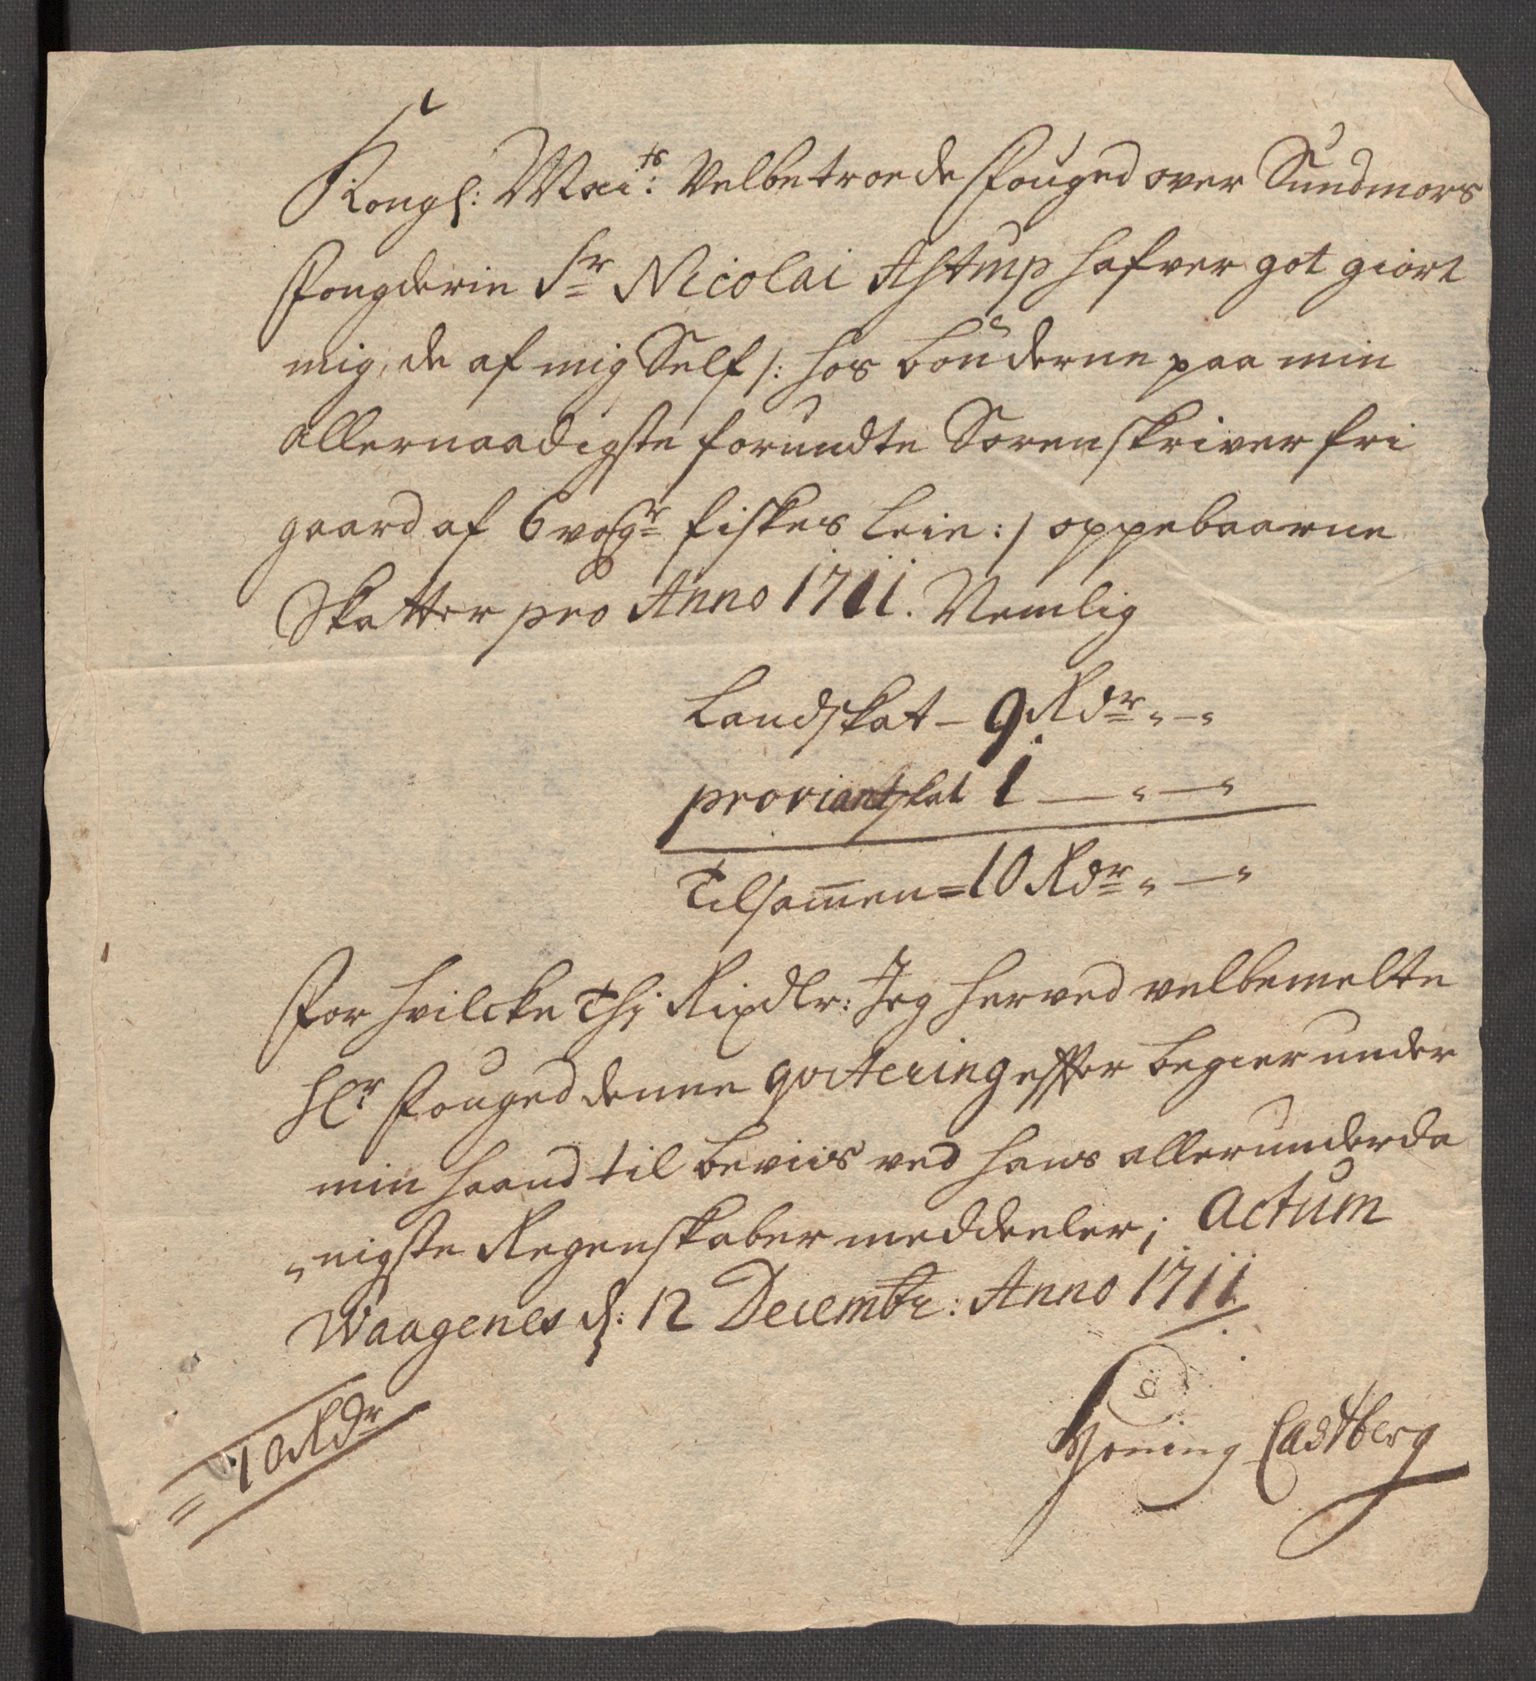 Kongl: Mai:ts Velbetroede Fouged over Sundmørs
Fougderie Sr Nicolai Astrup hafver got giort
mig, de af mig Self /: hos bønderne paa min
allernaadigste forundte Sorenskriver fri
gaard af 6 vogr fiskes leie :/ oppebaarne
Skatter pro Anno 1711. Nemlig
Landskat – 9 Rdr „ – „
proviantskat 1 – „ – „
Tilsamen = 10 Rdr „ – „
For hvilcke Thj Rixdlr: Jeg herved velbemelte
Hr Fouged denne qvitering effter begier under
min haand til beviis ved hans allerunderda
„nigste Regenskaber meddeeler; Actum
Waagenes d: 12 Decembr: Anno 1711
Castberg
= 10 Rdr